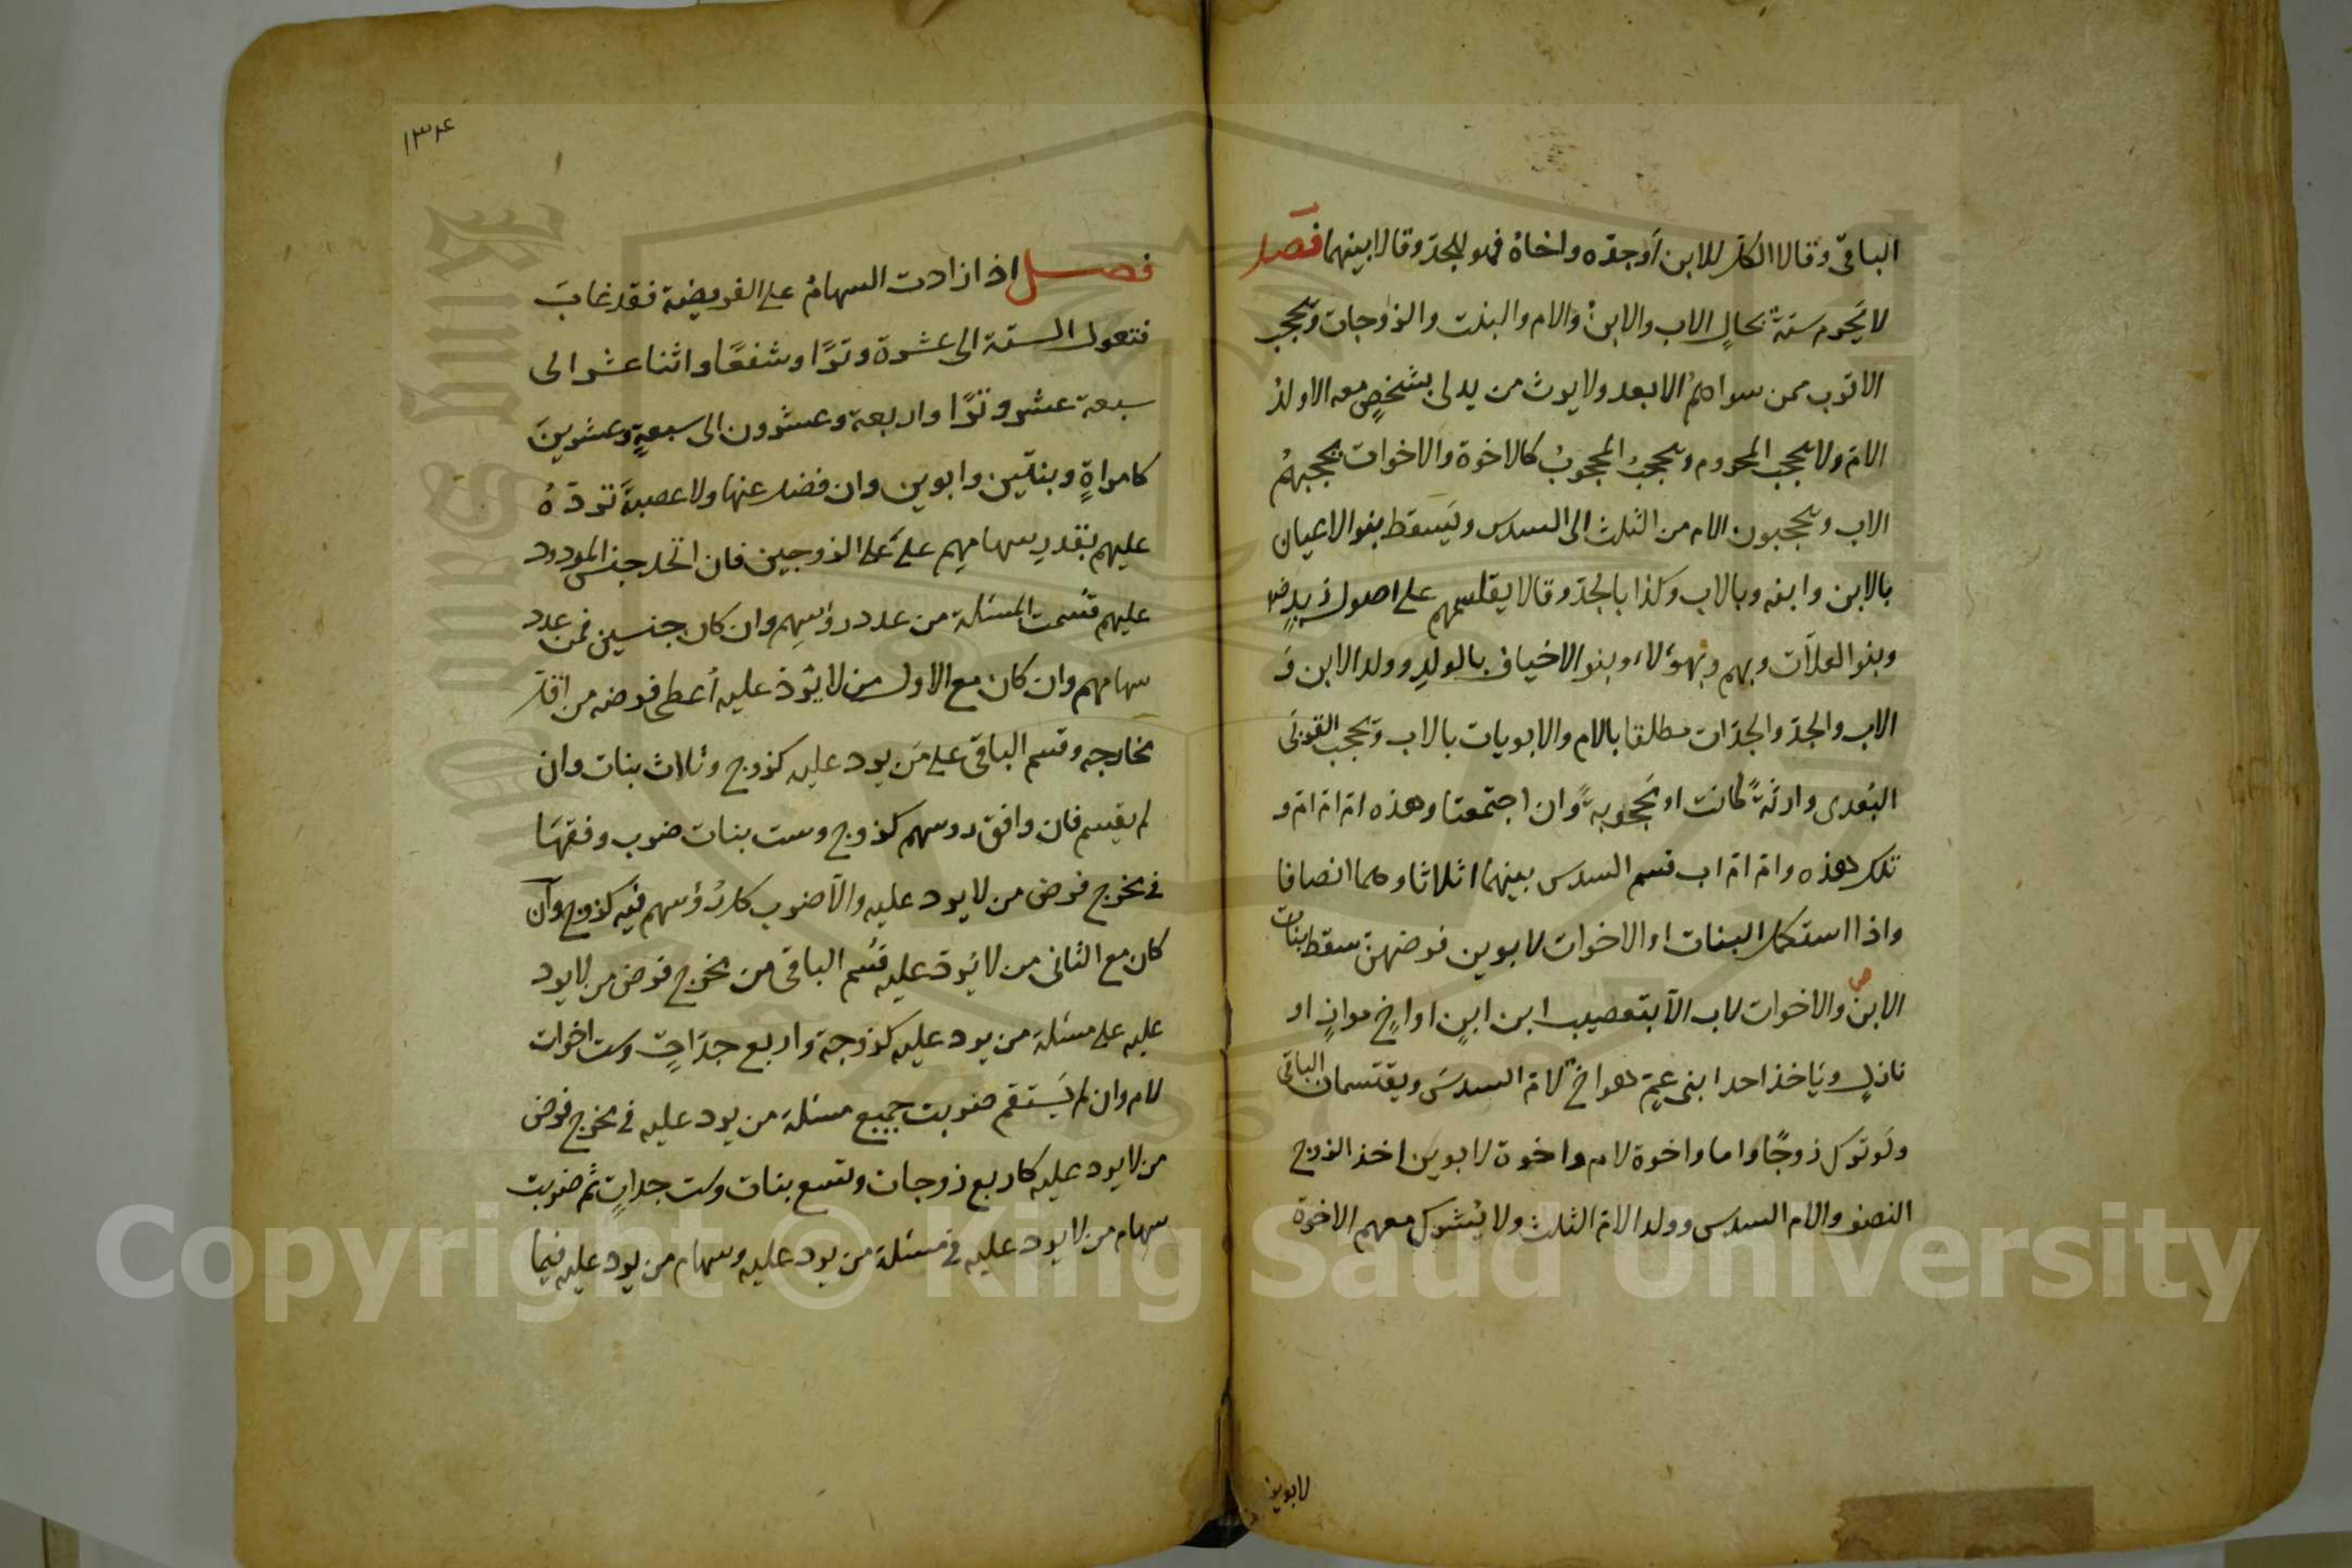 الباقى وقالا الكل للابن أوجده واخاه فهو للجد وقالا بينهما فصل
لا يحرم ستة بحال الاب والابن والام والبنت والزوجان ويحجب
الاقرب ممن سواهم الابعد ولا يرث من يدلى بشخص معه الا ولد
الام ولا يحجب المحروم ويحجب المحجوب كالاخوة والاخوات يحجبهم
الاب ويحجبون الام من الثلث الى السدس ويسقط بنو الاعيان
بالابن وابنه وبالاب وكذا بالجد وقالا يقاسمهم على اصول زيد رض
وبنو العلات وبهم وبهؤلاء وبنو الاخياف بالولد وولد الابن و
الاب والجد والجدات مطلقا بالام والابويات بالاب وتحجب القربى
البعدى وارثة كانت او محجوبة وان اجتمعتا وهذه ام ام ام و
تلك هذه وام ام اب قسم السدس بينهما اثلاثا وهما انصافا
واذا استكمل البنات او الاخوات لابوين فرضهن سقط بنات
الابن والاخوات لاب الا بتعصيب ابن ابن او اخ مواز او
نازل وياخذ احد ابنى عم هو اخ لام السدس ويقتسمان الباقى
ولو ترك زوجا واما واخوة لام واخوة لابوين اخذ الزوج
النصف والام السدس وولد الام الثلث ولا يشرك معهم الاخوة
لابوين
١٣٤
فصل اذا زادت السهام على الفريضة فقد عالت
فتعول الستة الى عشرة وترا وشفعا واثنا عشر الى
سبعة عشر وترا واربعة وعشرون الى سبعة وعشرين
كامراة وبنتين وابوين وان فضل عنها ولا عصبة تردّه
عليهم بقدر سهامهم على الزوجين فان اتحد جنس المردود
عليهم قسمت المسئلة من عدد رؤسهم وان كان جنسين فمن عدد
سهامهم وان كان مع الاول من لا يرد عليه أعطى فرضه من اقل
مخارجه وقسم الباقى على من يرد عليه كزوج وثلاث بنات وان
لم يقسم فان وافق روسهم كزوج وست بنات ضرب وفقها
فى مخرج فرض من لا يرد عليه والا ضرب كل رؤسهم فيه كزوج وان
كان مع الثانى من لا يرد عليه قسم الباقى من مخرج فرض من لا يرد
عليه على مسئلة من يرد عليه كزوجة واربع جدات وست اخوات
لام وان لم يستقم ضربت جميع مسئلة من يرد عليه فى مخرج فرض
من لا يرد عليه كاربع زوجات وتسع بنات وست جدات ثم ضربت
سهام من لا يرد عليه فى مسئلة من يرد عليه وسهام من يرد عليه فيما
Copyright © King Saud University